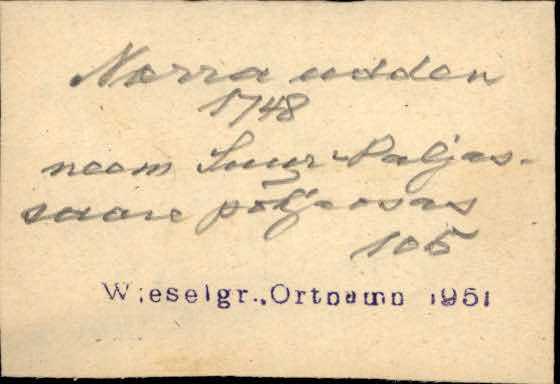 Norra udden
1748
neem Suur-Paljas-
saare põhjaosas
105
Wieselgr., Ortnamn 1951